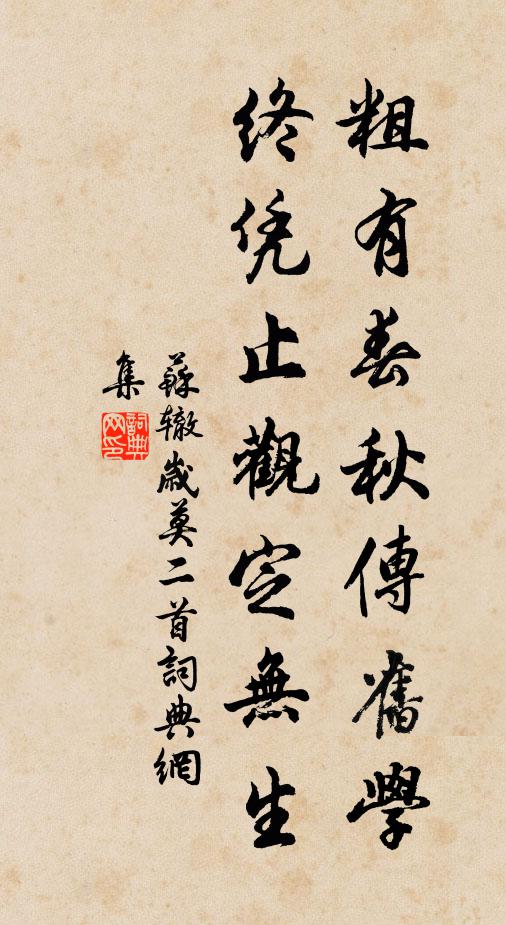 粗有春秋傳舊學
終凭止觀定無生
蘇轍歲莫二首詞典網
集
詞典
网印